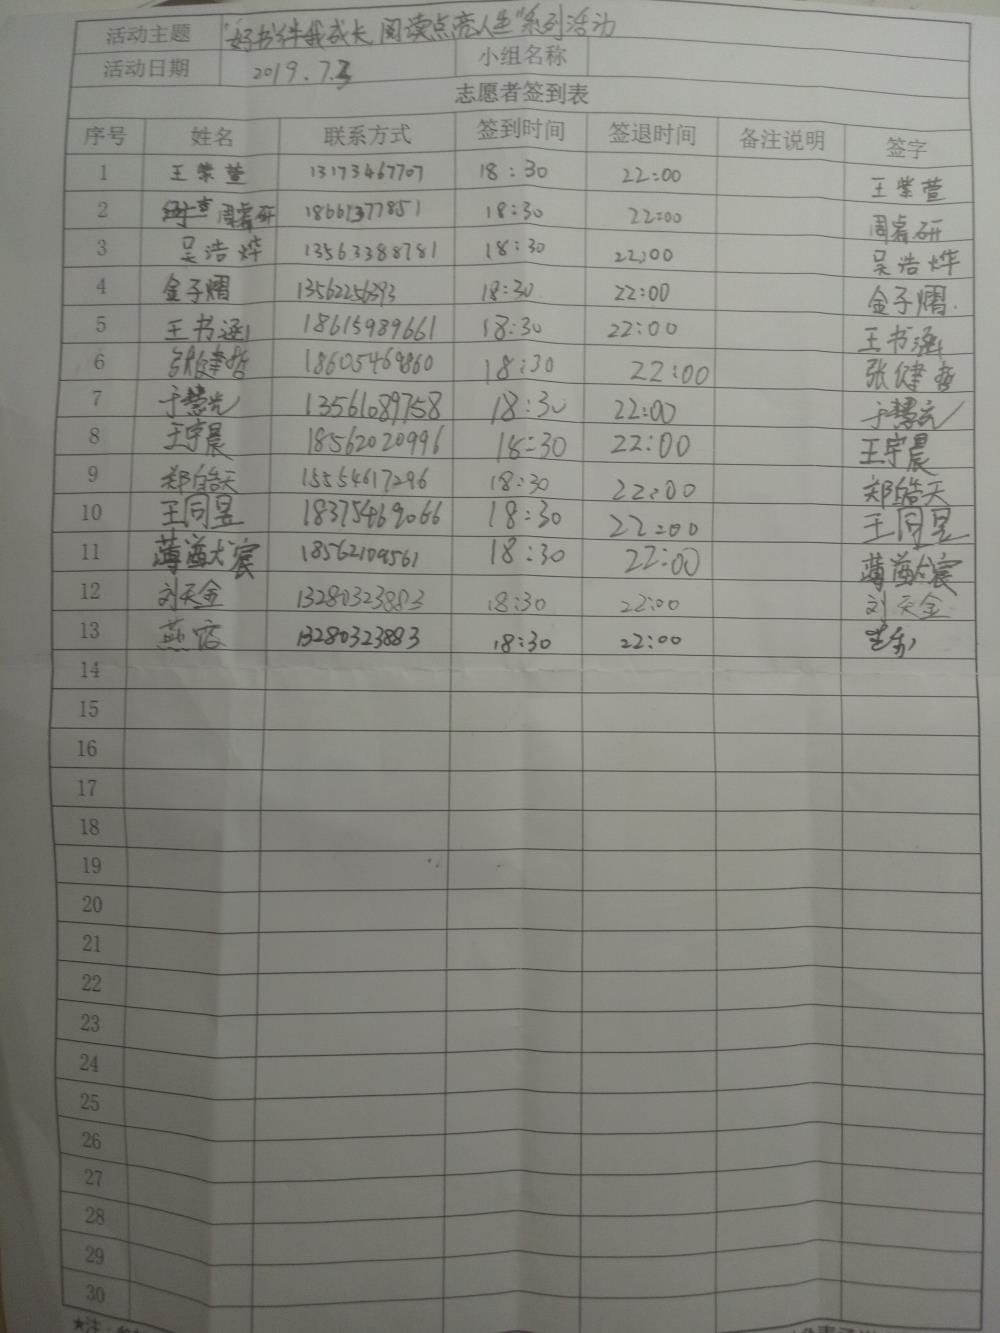 活动主题 "好书伴我成长 阅读点亮人生"系列活动
活动日期 2019.7.3 小组名称
志愿者签到表
序号 姓名 联系方式 签到时间 签退时间 备注说明 签字
1 王紫萱 13173467707 18:30 22:00 王紫萱
2 周睿研 18661377851 18:30 22:00 周睿研
3 吴浩烨 13563388781 18:30 22:00 吴浩烨
4 金子熠 13562256393 18:30 22:00 金子熠
5 王书涵 18615989661 18:30 22:00 王书涵
6 张健哲 18605469860 18:30 22:00 张健哲
7 于慧元 13561089758 18:30 22:00 于慧元
8 王宇晨 18562020996 18:30 22:00 王宇晨
9 郑皓天 15554617296 18:30 22:00 郑皓天
10 王同昱 18375469066 18:30 22:00 王同昱
11 薄 宸 18562109561 18:30 22:00 薄 宸
12 刘天金 13280323883 18:30 22:00 刘天金
13 燕 13280323883 18:30 22:00
14
15
16
17
18
19
20
21
22
23
24
25
26
27
28
29
30